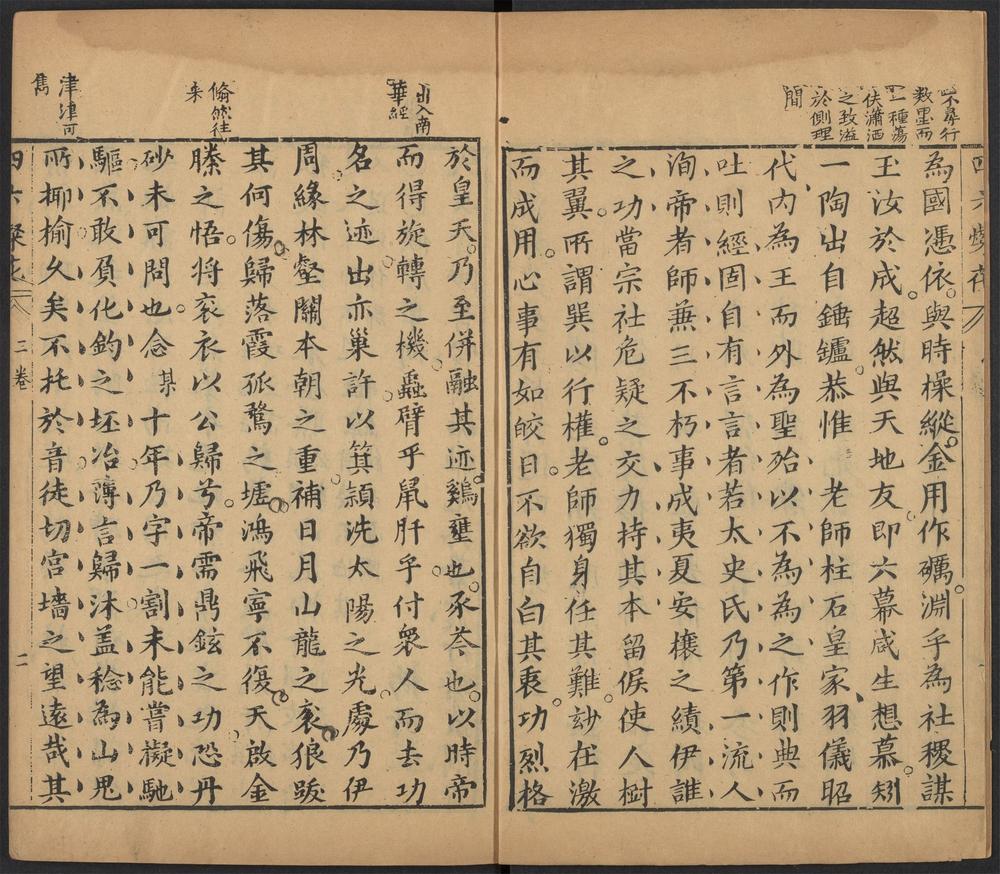 不尋行
數墨而
一種蕩
佚瀟洒
之致溢
於側理
間
為國憑依與時操縱金用作礪淵乎為社稷謀
玉汝於成超然與天地友即六幕咸生想慕矧
一陶出自錘鑪恭惟　老師柱石皇家羽儀昭
代内為王而外為聖殆以不為為之作則典而
吐則經固自有言言者若太史氏乃第一流人
洵帝者師兼三不朽事成夷夏安攘之績伊誰
之功當宗社危疑之交力持其本留侯使人樹
其翼所謂巽以行權老師獨身任其難玅在激
而成用心事有如皎日不欲自白其衷功烈格
出入南
華經
翛然往
来
津津可
雋
於皇天乃至併融其迹鷄壅也豕苓也以時帝
而得旋轉之機蟲臂乎鼠肝乎付衆人而去功
名之迹出亦巢許以箕潁洗太陽之光處乃伊
周緣林壑關本朝之重補日月山龍之衮狼跋
其何傷歸落霞孤鶩之墟鴻飛寧不復天啟金
縢之悟將衮衣以公歸兮帝需鼎鉉之功恐丹
砂未可問也念某十年乃字一割未能嘗擬馳
驅不敢負化鈞之坯冶薄言歸沐盖稔為山鬼
所揶揄久矣不扥於音徒切宫墻之望遠哉其
四六燦花
二卷
二